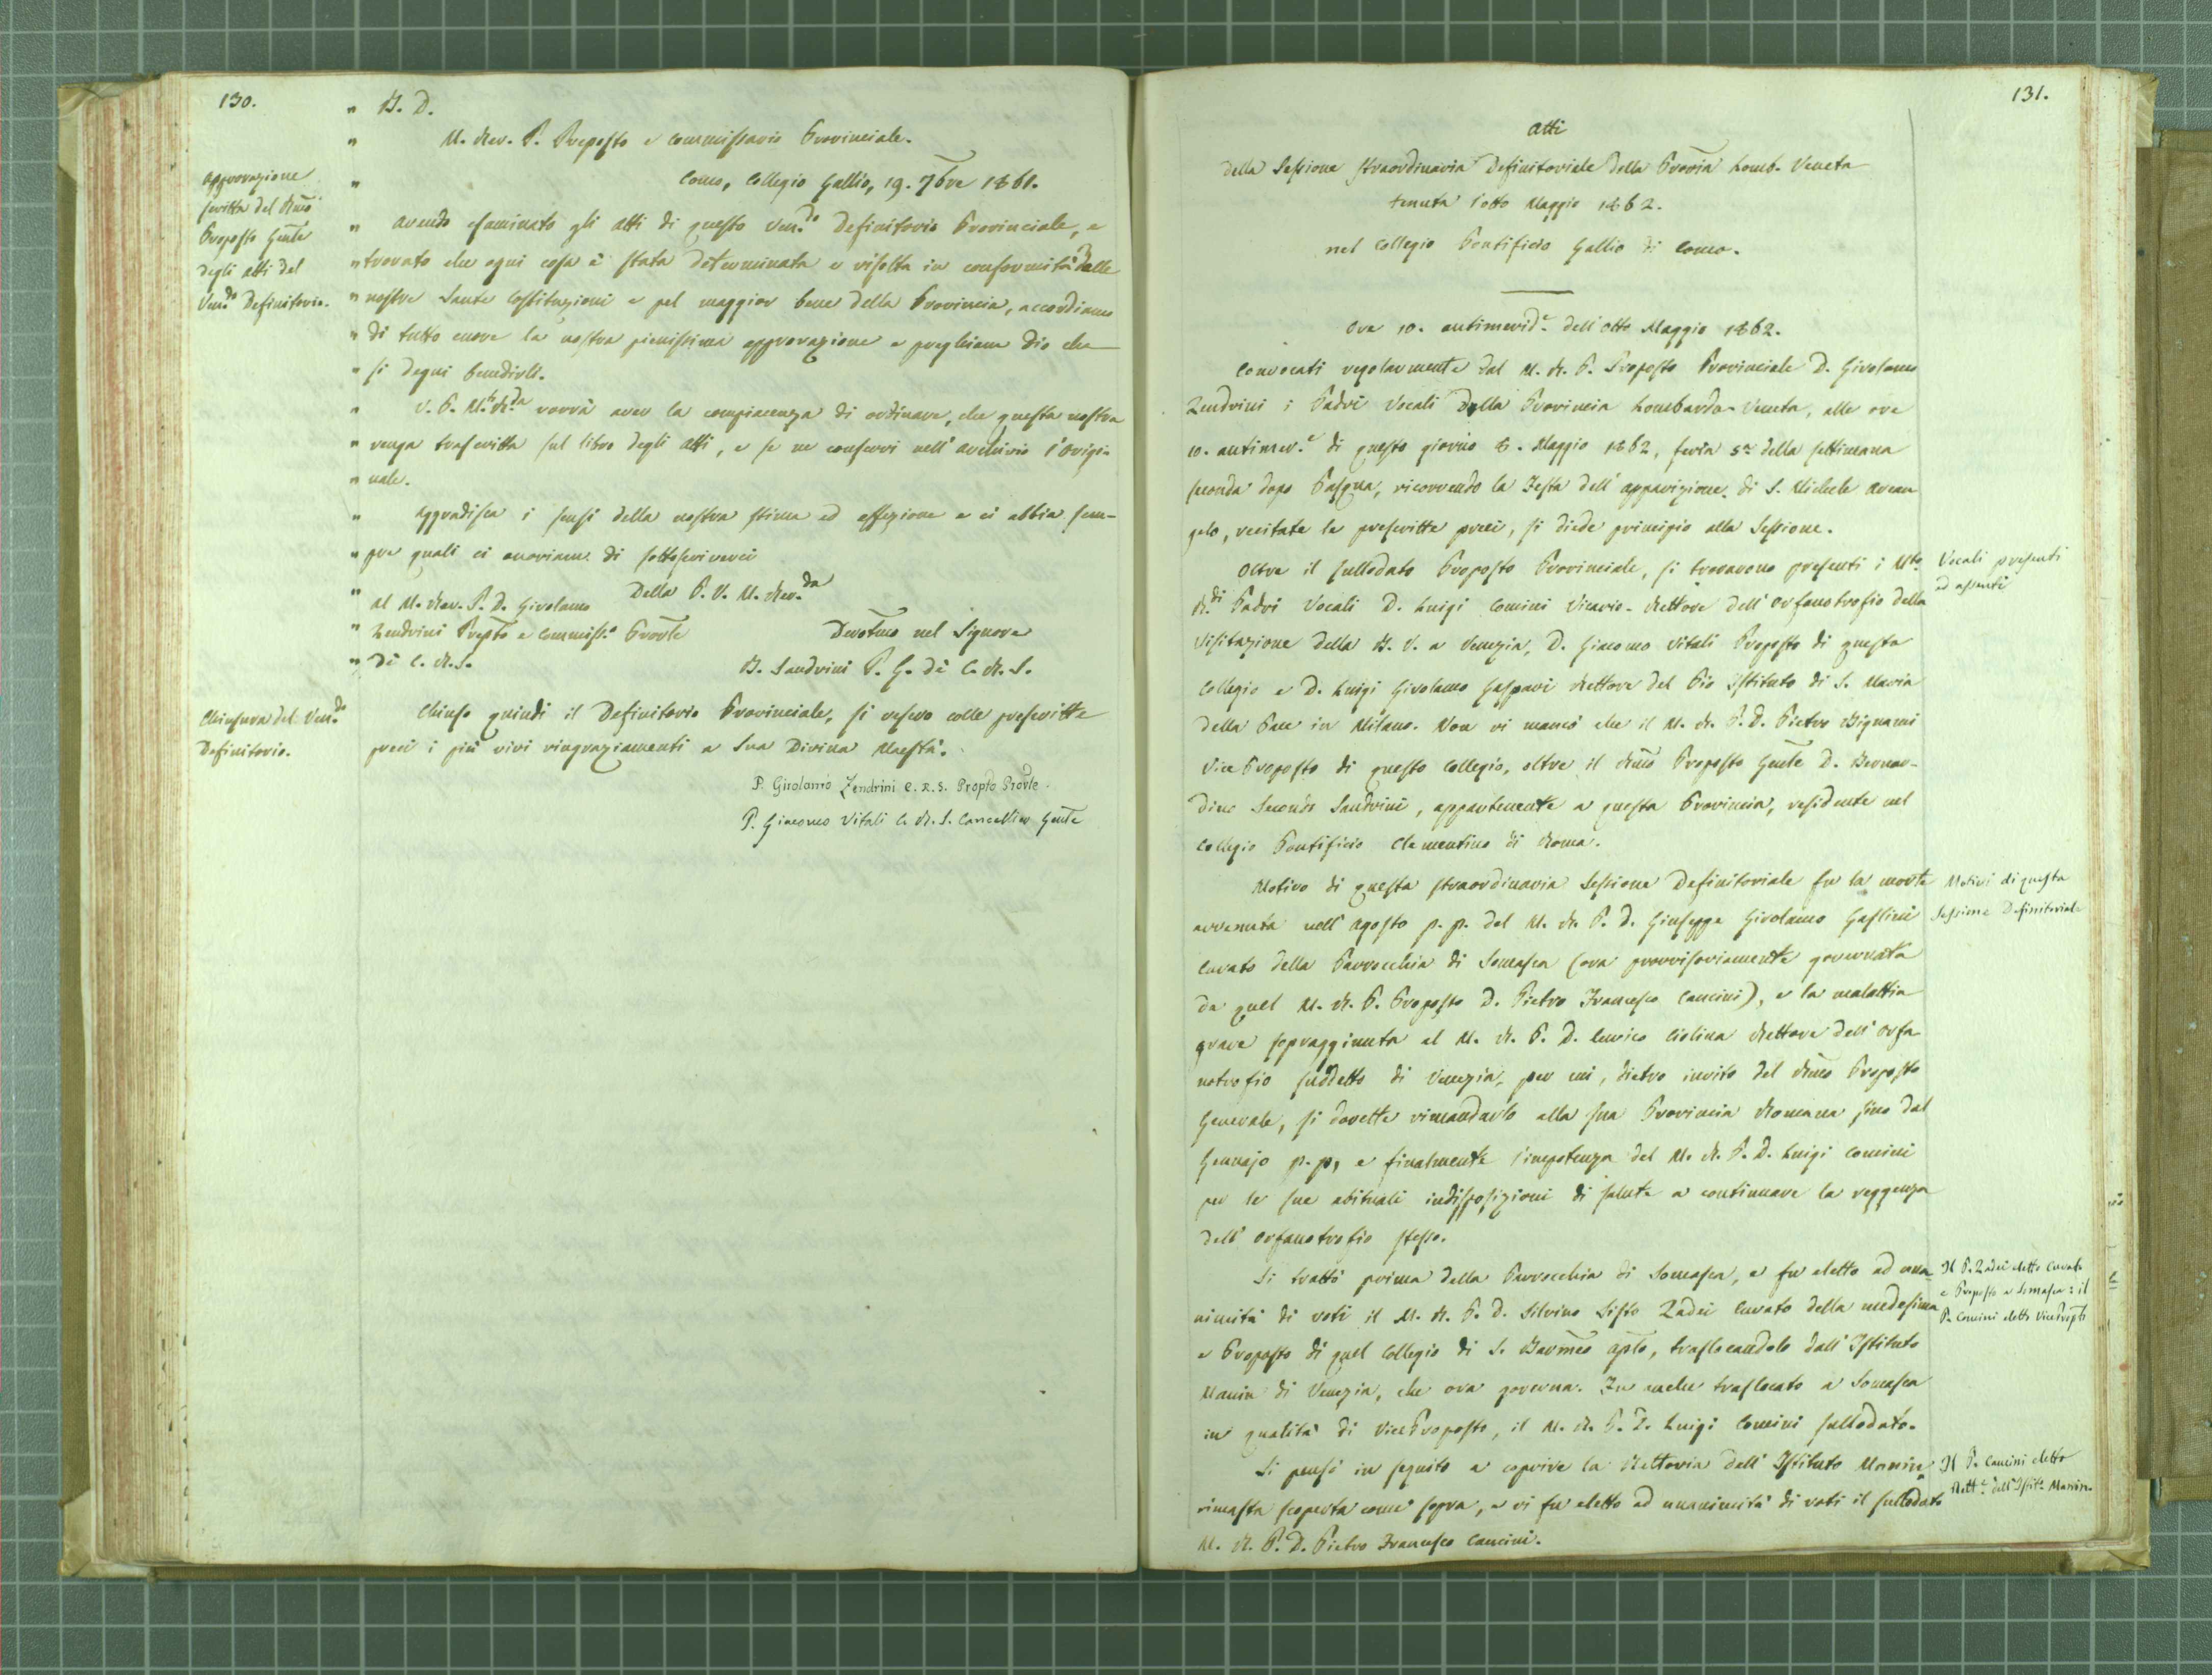 130.
" B. D.
" M. Rev. P. Preposto e Commissario Provinciale.
Approvazione
scritta del Rmo
Proposto Gnle
degli atti del
Ven.do Definitorio.
" Como, Collegio Gallio, 19. 7bre 1861.
" Avendo esaminato gli atti di questo Ven.do Definitorio Provinciale, e
" trovato che ogni cosa è stata determinata e risolta in conformità delle
" nostre Sante Costituzioni e pel maggior bene della Provincia, accordiamo
" di tutto cuore la nostra pienissima approvazione e preghiamo Dio che
" si degni benedirli.
" V. P. M.to R.da vorrà aver la compiacenza di ordinare, che questa nostra
" venga trascritta sul libro degli atti, e se ne conservi nell'archivio l'origi-
" nale.
" Aggradisca i sensi della nostra stima ed affezione e ci abbia sem-
" pre quali ci onoriamo di sottoscriverci
" Della P. V. M. Rev.da
" Al M. Rev. P. D. Girolamo
" Zendrini Prepto e Commiss.o Provle
" di C. R. S.
Devotmo nel Signore
B. Sandrini P. G. di C. R. S.
Chiusura del Ven.do
Definitorio.
Chiuso quindi il Definitorio Provinciale, si resero colle prescritte
preci i più vivi ringraziamenti a Sua Divina Maestà.
P. Girolamo Zendrini C. R. S. Propto Provle.
P. Giacomo Vitali C. R. S. Cancelliere Gnle
131.
Atti
della Sessione straordinaria Definitoriale della Provia Lomb. Veneta
tenuta l'otto Maggio 1862.
nel Collegio Pontificio Gallio di Como.
Ore 10. antimerid.e dell'otto Maggio 1862.
Convocati regolarmente dal M. R. P. Proposto Provinciale D. Girolamo
Zendrini i Padri Vocali della Provincia Lombardo-Veneta, alle ore
10. antimer.e di questo giorno 8. Maggio 1862, feria 5a della settimana
seconda dopo Pasqua, ricorrendo la Festa dell'apparizione di S. Michele Arcan
gelo, recitate le prescritte preci, si diede principio alla Sessione.
Oltre il sullodato Proposto Provinciale, si trovarono presenti i Mto
R.di Padri Vocali D. Luigi Comini Vicario-Rettore dell'Orfanotrofio della
Visitazione della B. V. a Venezia, D. Giacomo Vitali Proposto di questo
Collegio e D. Luigi Girolamo Gaspari Rettore del Pio Istituto di S. Maria
della Pace in Milano. Non vi mancò che il M. R. P. D. Pietro Bignami
Vice Proposto di questo Collegio, oltre il Rmo Proposto Gnle D. Bernar-
dino Secondo Sandrini, appartenente a questa Provincia, residente nel
Collegio Pontificio Clementino di Roma.
Vocali presenti
ed assenti
Motivo di questa straordinaria Sessione Definitoriale fu la morte
avvenuta nell'agosto p. p. del M. R. P. D. Giuseppe Girolamo Gaslini
Curato della Parrocchia di Somasca (ora provvisoriamente governata
da quel M. R. P. Proposto D. Pietro Francesco Cancini), e la malattia
grave sopraggiunta al M. R. P. D. Enrico Ciolina Rettore dell'Orfa
notrofio suddetto di Venezia, per cui, dietro invito del Rmo Proposto
Generale, si dovette rimandarlo alla sua Provincia Romana sino dal
Gennajo p. p, e finalmente l'impotenza del M. R. P. D. Luigi Comini
per le sue abituali indisposizioni di salute a continuare la reggenza
dell'Orfanotrofio stesso.
Motivi di questa
Sessione Definitoriale
Si trattò prima della Parrocchia di Somasca, e fu eletto ad una
nimità di voti il M. R. P. D. Silvino Sisto Zadei Curato della medesima
e Proposto di quel Collegio di S. Barmeo apsto, traslocandolo dall'Istituto
Manin di Venezia, che ora governa. Fu anche traslocato a Somasca
in qualità di ViceProposto, il M. R. P. D. Luigi Comini sullodato.
Il P. Zadei eletto Curato
e Proposto a Somasca: il
P. Comini eletto VicePropto
Si pensò in seguito a coprire la Rettoria dell'Istituto Manin,
rimasta scoperta come sopra, e vi fu eletto ad unanimità di voti il sullodato
M. R. P. D. Pietro Francesco Cancini.
Il P. Cancini eletto
Rett.e dell'Istit.o Manin.